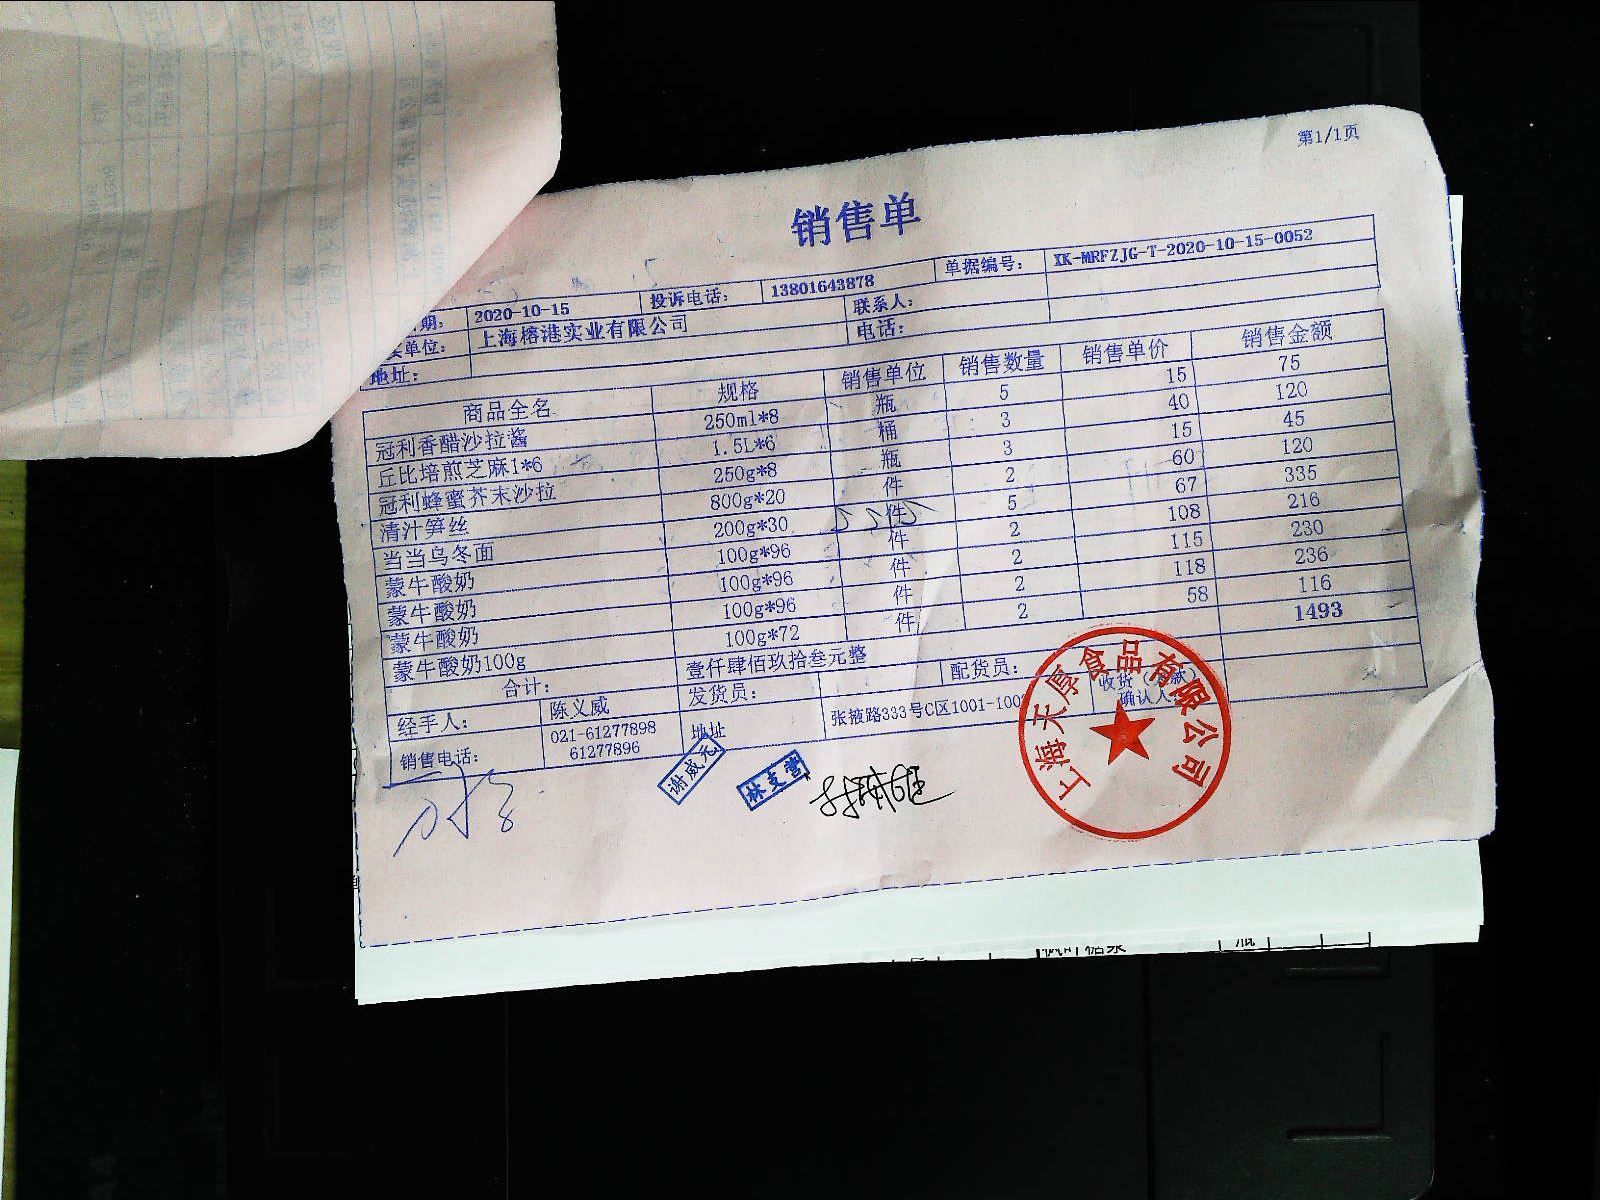 第1/1页
销售单
期: 2020-10-15 投诉电话: 13801643878 单据编号: XK-MRFZJG-T-2020-10-15-0052
单位: 上海榕港实业有限公司 联系人:
地址: 电话:
商品全名 规格 销售单位 销售数量 销售单价 销售金额
冠利香醋沙拉酱 250ml*8 瓶 5 15 75
丘比培煎芝麻1*6 1.5L*6 桶 3 40 120
冠利蜂蜜芥末沙拉 250g*8 瓶 3 15 45
清汁笋丝 800g*20 件 2 60 120
当当乌冬面 200g*30 件 5 67 335
蒙牛酸奶 100g*96 件 2 108 216
蒙牛酸奶 100g*96 件 2 115 230
蒙牛酸奶 100g*96 件 2 118 236
蒙牛酸奶100g 100g*72 件 2 58 116
合计: 壹仟肆佰玖拾叁元整 1493
经手人: 陈义威 发货员: 配货员: 收货
确认人
销售电话: 021-61277898 地址 张掖路333号C区1001-100
61277896
谢威元
林支营
上海天厚食品有限公司